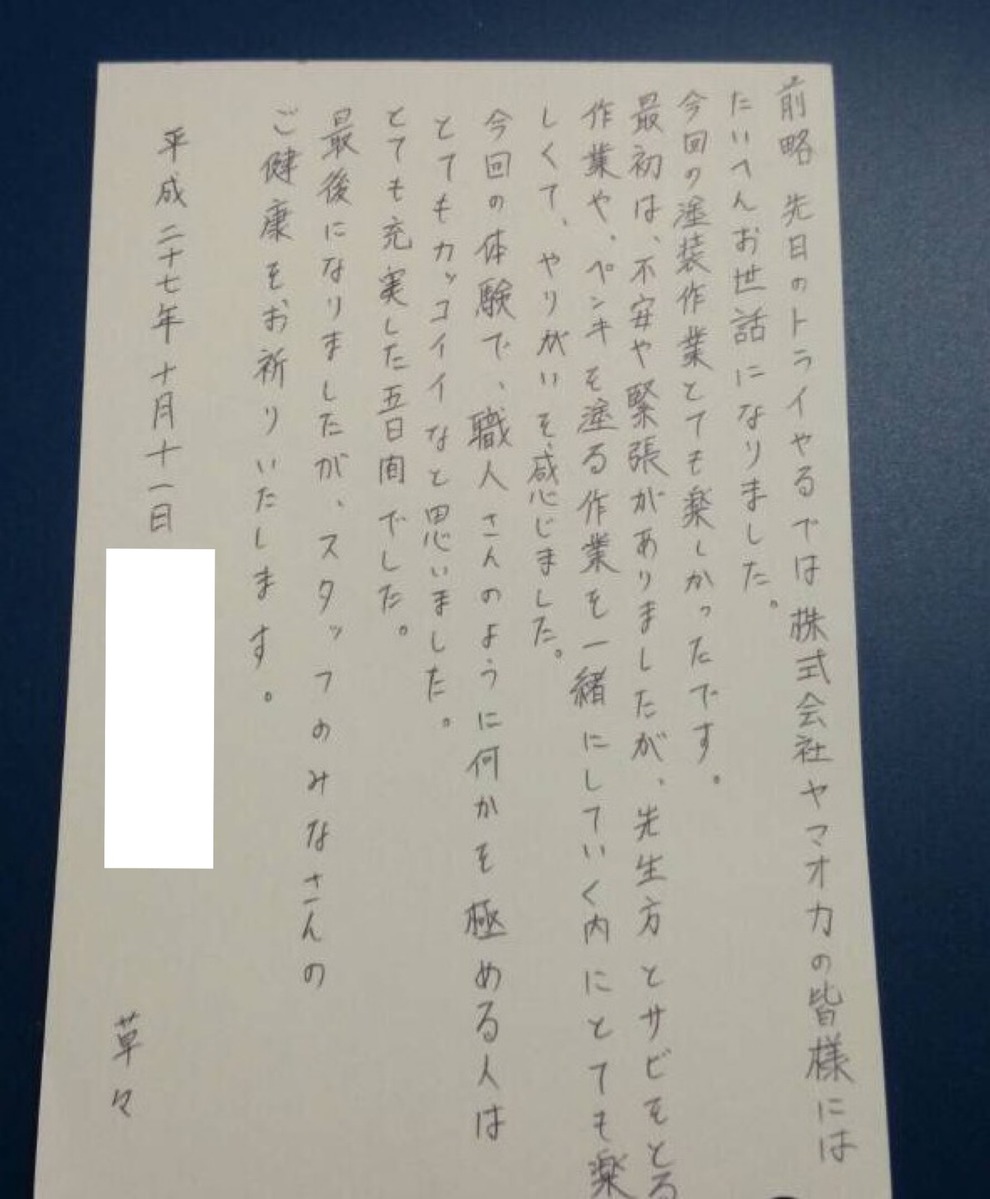 前略 先日のトライやるでは株式会社ヤマオカの皆様には
たいへんお世話になりました。
今回の塗装作業とても楽しかったです。
最初は、不安や緊張がありましたが、先生方とサビをとる
作業や、ペンキを塗る作業を一緒にしていく内にとても楽
しくて、やりがいを感じました。
今回の体験で、職人さんのように何かを極める人は
とてもカッコイイなと思いました。
とても充実した五日間でした。
最後になりましたが、スタッフのみなさんの
ご健康をお祈りいたします。
平成二十七年十月十一日
草々